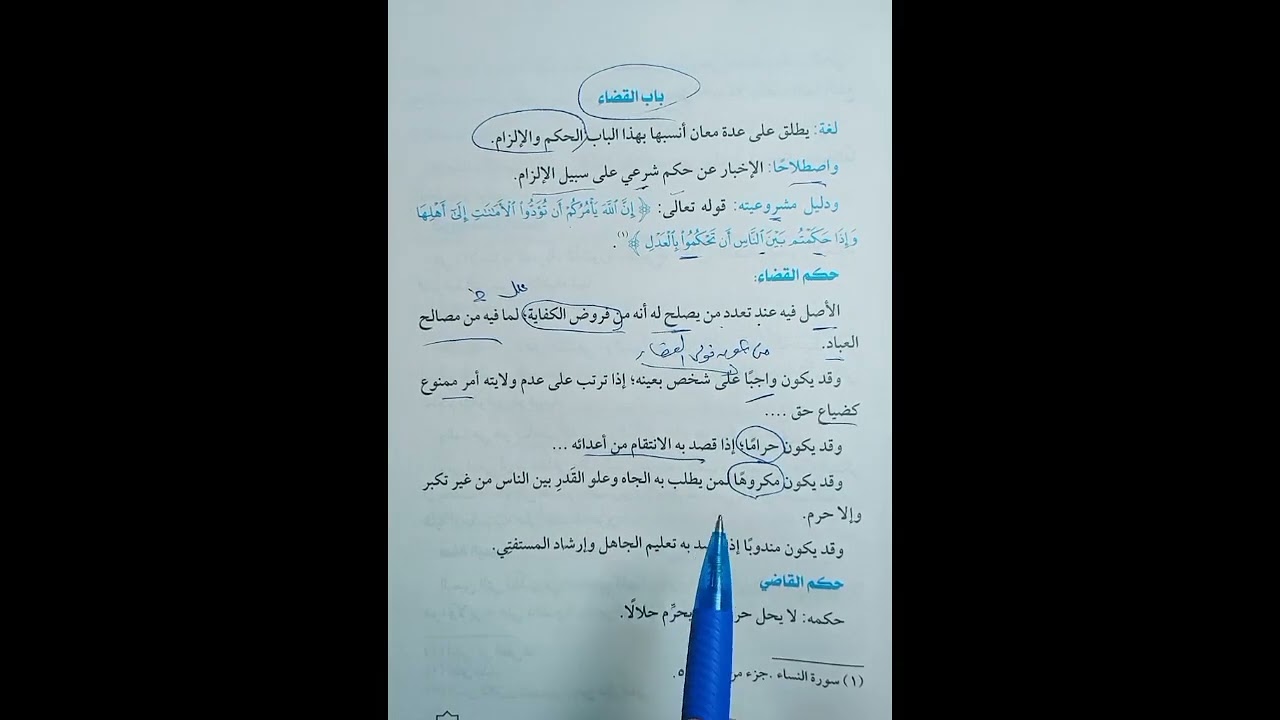 باب القضاء
لغة: يطلق على عدة معان أنسبها بهذا الباب: الحكم والإلزام.
واصطلاحًا: الإخبار عن حكم شرعي على سبيل الإلزام.
ودليل مشروعيته: قوله تعالى: ﴿إِنَّ اللَّهَ يَأْمُرُكُمْ أَن تُؤَدُّوا الْأَمَانَاتِ إِلَىٰ أَهْلِهَا
وَإِذَا حَكَمْتُم بَيْنَ النَّاسِ أَن تَحْكُمُوا بِالْعَدْلِ﴾(١).
حكم القضاء:
الأصل فيه عند تعدد من يصلح له أنه من فروض الكفاية؛ لما فيه من مصالح
العباد.
وقد يكون واجبًا على شخص بعينه؛ إذا ترتب على عدم ولايته أمر ممنوع
كضياع حق ....
وقد يكون حرامًا؛ إذا قصد به الانتقام من أعدائه ...
وقد يكون مكروهًا لمن يطلب به الجاه وعلو القَدرِ بين الناس من غير تكبر
وإلا حرم.
وقد يكون مندوبًا به تعليم الجاهل وإرشاد المستفتِي.
حكم القاضي
حكمه: لا يحل يحرِّم حلالًا.
(١) سورة النساء .جزء